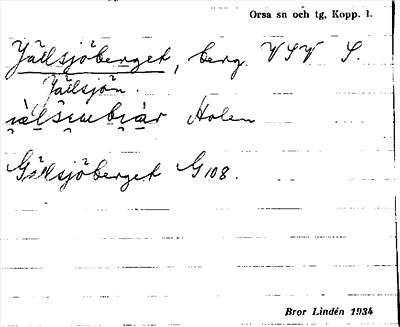 Orsa sn och tg, Kopp. l.
Jälsjöberget, berg. VSV S.
Jälsjön.
Holen
Gälsjöberget G108.
Bror Lindén 1934